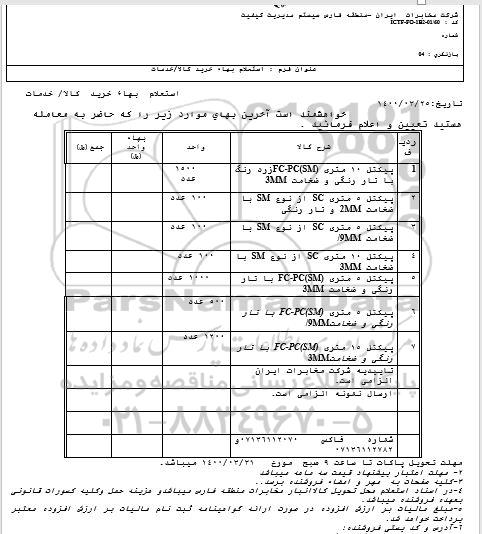 شرکت مخابرات ایران -منطقه فارس سیستم مدیریت کیفیت
کد : ICTF-FO-182-01/60
شماره
بازنگری : 04
عنوان فرم : استعلام بهاء خرید کالا/خدمات
استعلام بهاء خرید کالا/ خدمات
تاریخ:۱۴۰۰/۰۳/۲۵
خواهشمند است آخرین بهاي موارد زیر را که حاضر به معامله
هستید تعیین و اعلام فرمائید .
ردیف شرح کالا واحد بهاء واحد (ریال) جمع (ریال)
1 پیکتل ۱۰ متری FC-PC(SM)زرد رنگ با تار رنگی و ضخامت 3MM ۱۵۰۰ عدد
۲ پیکتل ۵ متری SC از نوع SM با ضخامت 2MM و تار رنگی ۱۰۰ عدد
۳ پیکتل ۵ متری SC از نوع SM با ضخامت 9MM/ ۱۰۰ عدد
۴ پیکتل ۱۰ متری SC از نوع SM با ضخامت 3MM ۱۰۰ عدد
۵ پیکتل ۵ متری FC-PC(SM) با تار رنگی و ضخامت 3MM ۱۰۰۰ عدد
۶ پیکتل ۵ متری FC-PC(SM) با تار رنگی و ضخامت9MM/ ۵۰۰ عدد
۷ پیکتل ۱۵ متری FC-PC(SM) با تار رنگی و ضخامت3MM ۱۲۰۰ عدد
تاییدیه شرکت مخابرات ایران الزامی است.
ارسال نمونه الزامی است.
شماره فاکس ۰۷۱۳۶۱۱۲۰۷۰و ۰۷۱۳۶۱۱۲۷۸۲
مهلت تحویل پاکات تا ساعت ۹ صبح مورخ ۱۴۰۰/۰۳/۳۱ میباشد.
۲- مهلت اعتبار پیشنهاد قیمت سه ماهه میباشد
۳-کلیه صفحات به مهر و امضاء فروشنده برسد..
۴-در اسناد استعلام محل تحویل کالاانبار مخابرات منطقه فارس میباشدو هزینه حمل وکلیه کسورات قانونی
بعهده فروشنده میباشد.
۵-مبلغ مالیات بر ارزش افزوده در صورت ارائه گواهینامه ثبت نام مالیات بر ارزش افزوده معتبر
پرداخت خواهد شد.
۶-آدرس و کد پستی فروشنده:
ParsNamadData
پایگاه اطلاع رسانی مناقصه و مزایده
۰۲۱-۸۸۳۴۹۶۷۰-۵